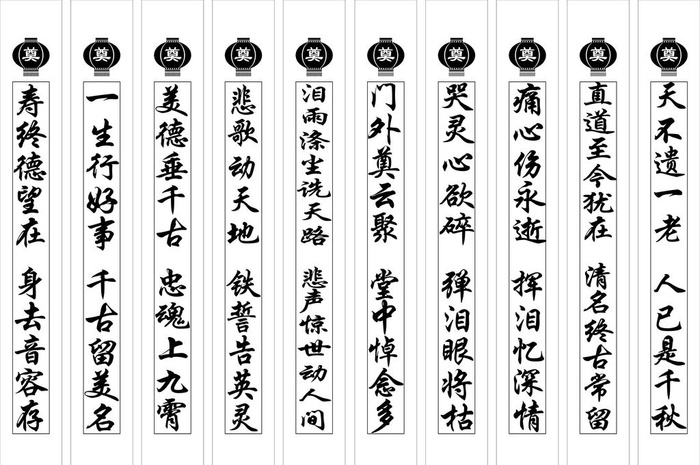 奠
天不遗一老 人已是千秋
奠
直道至今犹在 清名终古常留
奠
痛心伤永逝 挥泪忆深情
奠
哭灵心欲碎 弹泪眼将枯
奠
门外奠云聚 堂中悼念多
奠
泪雨涤尘洗天路 悲声惊世动人间
奠
悲歌动天地 铁誓告英灵
奠
美德垂千古 忠魂上九霄
奠
一生行好事 千古留美名
奠
寿终德望在 身去音容存